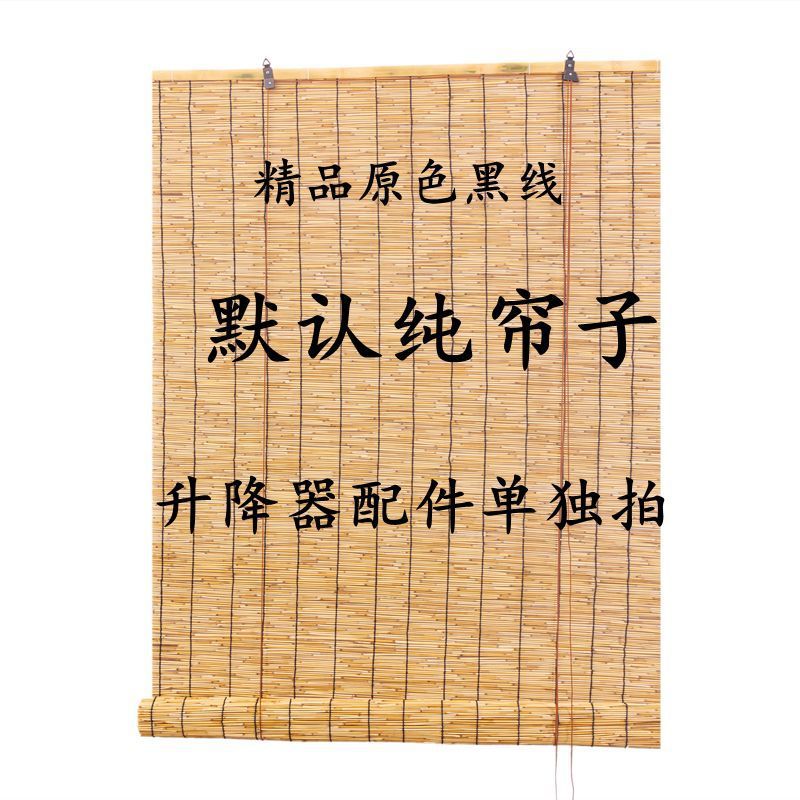 精品原色黑线
默认纯帘子
升降器配件单独拍